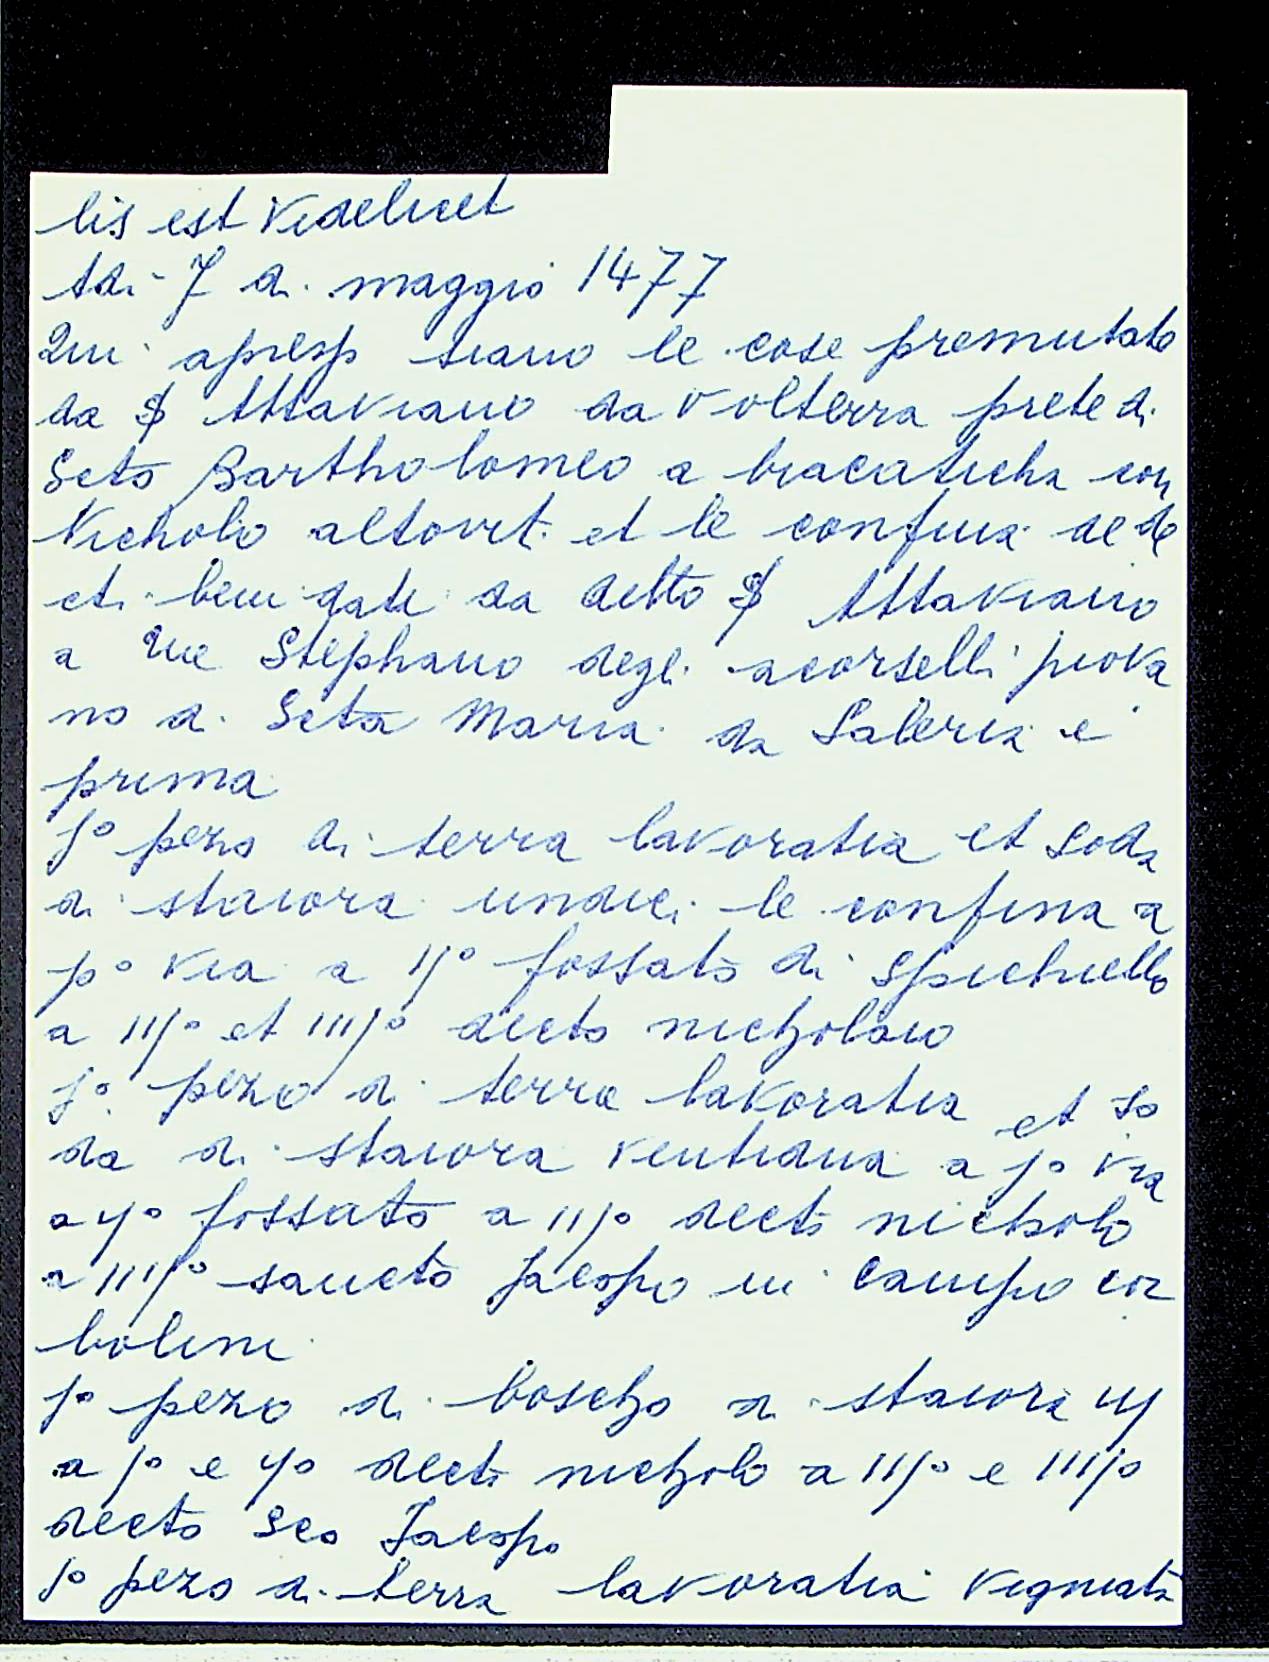 lis est videlicet
Adi - 7 di maggio 1477
Qui apresso siano le cose premutate
da S Attaviano da Volterra prete di
Scto Bartholomeo a bracaticha con
Nicholo altovit. et le confina dede
et i beni dati da detto S Attaviano
a me Stephano degli acorselli piova
no di Scta Maria da Faleria e
prima
jº pezo di terra lavoratia et soda
di staiora undici le confina a
pº via a IIº fossato di Spichiello
a IIIº et IIIIº decto nicholaio
jº pezo di terra lavoratia et so
da di staiora ventidua a jº via
a IIº fossato a IIIº decto nicholo
a IIIIº sancto Jacopo in Campo cor
bolini
jº pezo di boscho di staiora IIJ
a jº e IIº decto nicholo a IIIº e IIIIº
decto Sco Jacopo
jº pezo di terra lavoratia vigniata